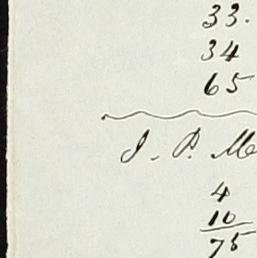 33.
34
65
J. P. Mc
4
10
75